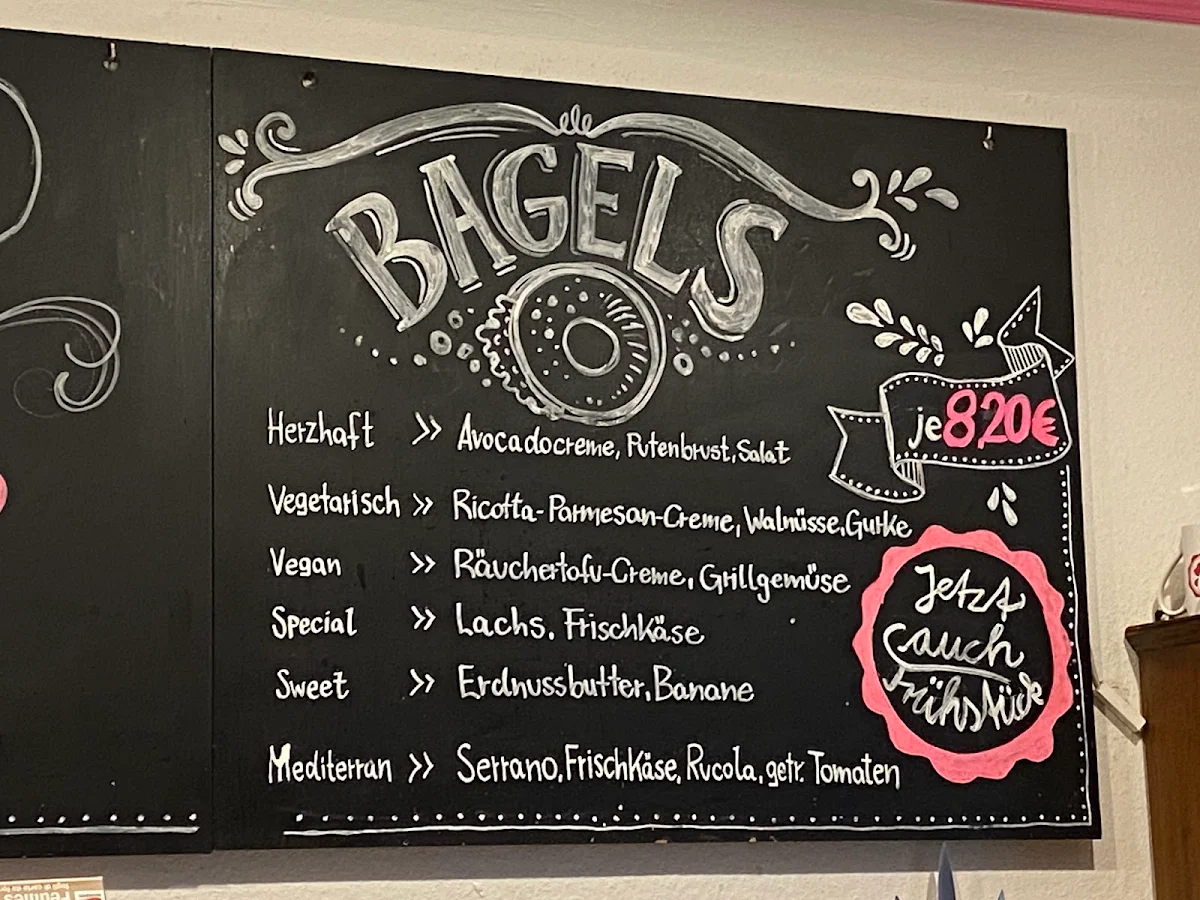 BAGELS
je 8,20€
Herzhaft >> Avocadocreme, Putenbrust, Salat
Vegetarisch >> Ricotta-Parmesan-Creme, Walnüsse, Gurke
Vegan >> Räuchertofu-Creme, Grillgemüse
Special >> Lachs, Frischkäse
Sweet >> Erdnussbutter, Banane
Mediterran >> Serrano, Frischkäse, Rucola, getr. Tomaten
Jetzt
auch
Frühstück